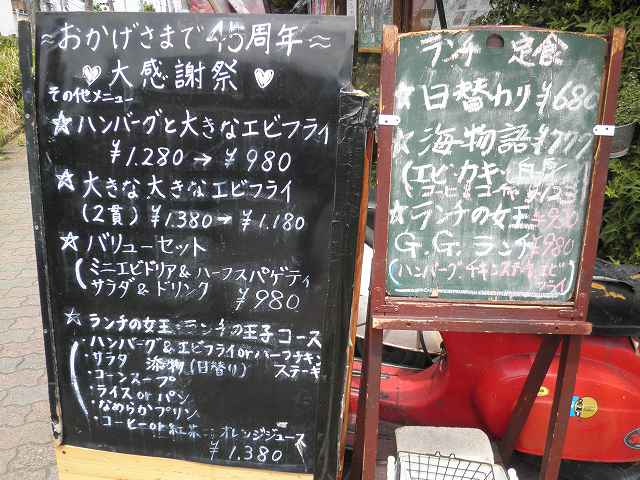 ~おかげさまで45周年~
♥大感謝祭♥
その他メニュー
☆ハンバーグと大きなエビフライ
¥1.280→¥980
☆大きな大きなエビフライ
(2貫) ¥1.380→¥1.180
☆バリューセット
(ミニエビドリア&ハーフスパゲティ
サラダ&ドリンク ¥980
☆ランチの女王・ランチの王子コース
・ハンバーグ&エビフライorハーフチキン
ステーキ
・サラダ 添物(日替り)
・コーンスープ
・ライスorパン
・なめらかプリン
・コーヒーor紅茶 オレンジジュース
¥1.380
ランチ 定食
☆日替わり ¥680
☆海物語 ¥777
(エビ・カキ・白身
☆ランチの女王 ¥930
G.G.ランチ ¥980
(ハンバーグ・チキンステーキ・エビ
フライ)